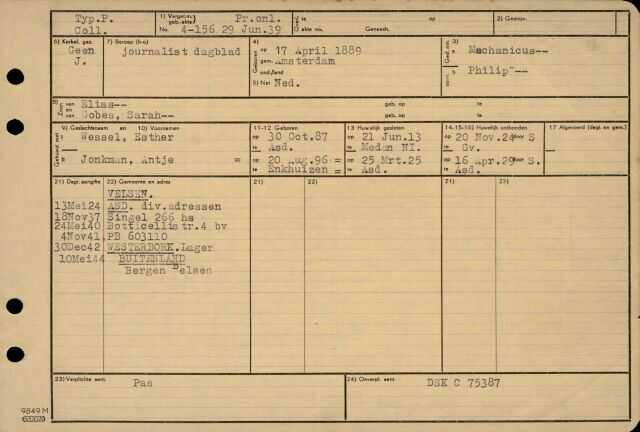 Typ.P.
Coll.
1) Vergel. m. geb. akte Pr.onl.
No. 4-156 29 Jun.39
te
akte no. Geresch.
2) Gezinsr.
6) Kerkel. gez.
Geen
J.
7) Beroep (h-o)
journalist dagblad
4)
Geboren
op 17 April 1889
gem. Amsterdam
ond./land
5) Nat Ned.
3)
a Mechanicus--
b Philip--
8)
Zoon van Elias-- geb. op te
en van Gobes, Sarah-- geb. op te
9) Geslachtsnaam en 10) Voornamen
11-12 Geboren
13 Huwelijk gesloten
14-15-16) Huwelijk ontbonden
17 Afgevoerd (degt. en gem.)
Wessel, Esther
op 30 Oct.87
te Asd.
op 21 Jun.13
te Medan NI.
op 20 Nov.24 door S
te Gv.
Jonkman, Antje =
op 20 Aug.96 =
te Enkhuizen =
op 25 Mrt.25
te Asd.
op 16 Apr.29 door S.
te Asd.
21) Dagt. aangifte 22) Gemeente en adres 21) 22) 21) 22)
VELSEN.
13Mei24 ASD. div.adressen
18Nov37 Singel 266 hs
24Mei40 Botticellistr.4 bv
4Nov41 PB 603110
30Dec42 WESTERBORK.Lager
10Mei44 BUITENLAND
Bergen Belsen
23) Verplichte aant. Pas
24) Onverpl. aant. DSK C 75387
9849 M